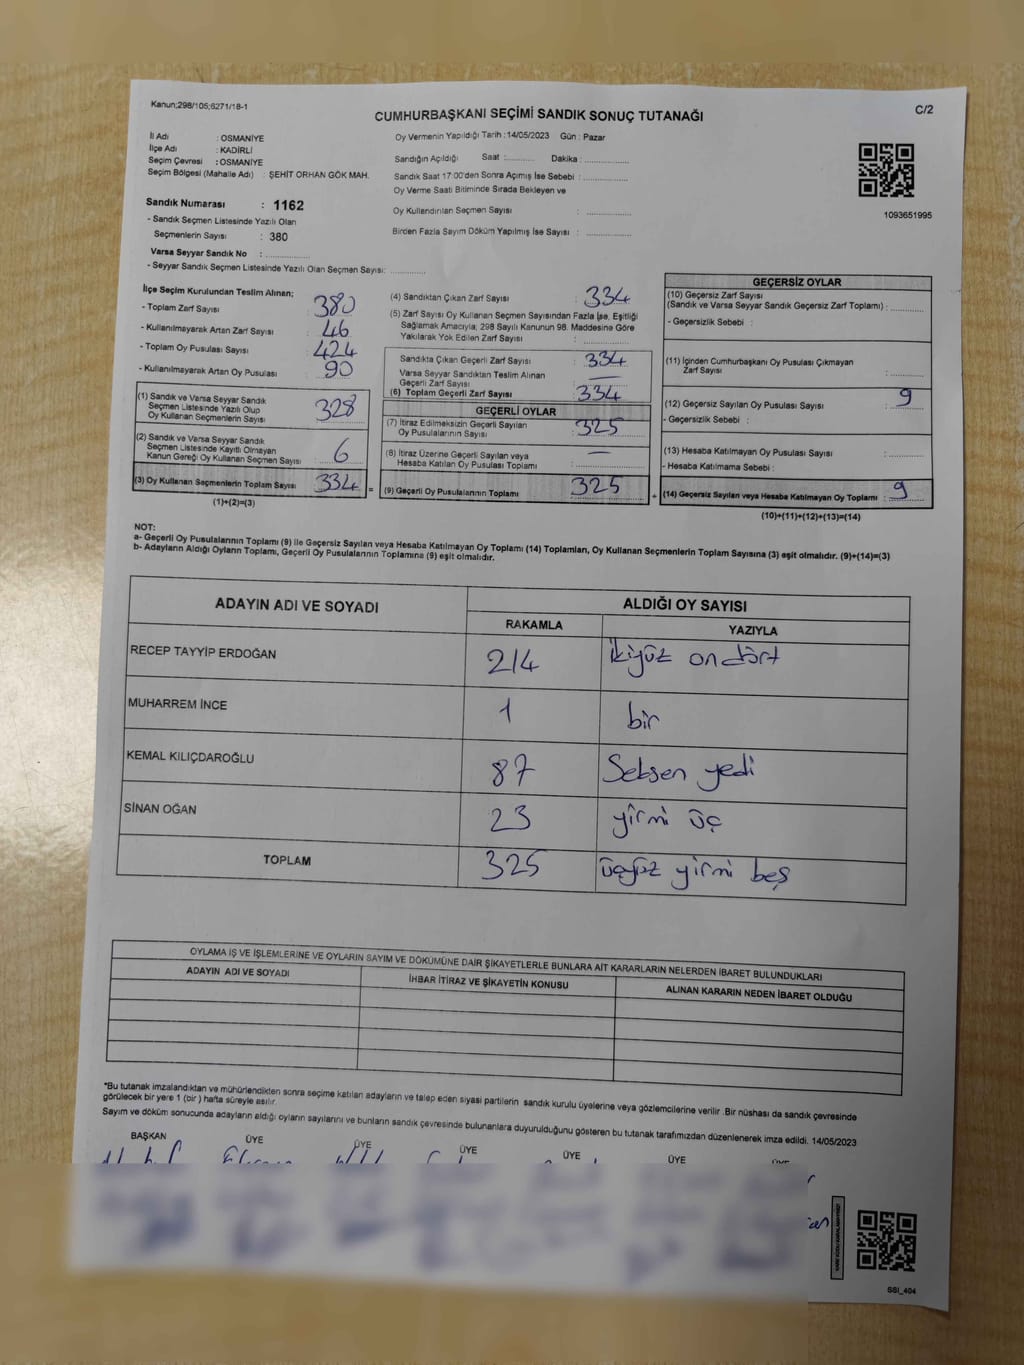 Kanun;298/105;6271/18-1
C/2
CUMHURBAŞKANI SEÇİMİ SANDIK SONUÇ TUTANAĞI
İl Adı : OSMANİYE
İlçe Adı : KADİRLİ
Seçim Çevresi : OSMANİYE
Seçim Bölgesi (Mahalle Adı) : ŞEHİT ORHAN GÖK MAH.
Oy Vermenin Yapıldığı Tarih : 14/05/2023 Gün : Pazar
Sandığın Açıldığı Saat :.......... Dakika : ................
Sandık Saat 17:00'den Sonra Açımış İse Sebebi : ................
Oy Verme Saati Bitiminde Sırada Bekleyen ve
Oy Kullandırılan Seçmen Sayısı : ................
Birden Fazla Sayım Döküm Yapılmış İse Sayısı : ................
1093651995
Sandık Numarası : 1162
- Sandık Seçmen Listesinde Yazılı Olan
Seçmenlerin Sayısı : 380
Varsa Seyyar Sandık No : ................
- Seyyar Sandık Seçmen Listesinde Yazılı Olan Seçmen Sayısı: ............
İlçe Seçim Kurulundan Teslim Alınan;
- Toplam Zarf Sayısı : 380
- Kullanılmayarak Artan Zarf Sayısı : 46
- Toplam Oy Pusulası Sayısı : 424
- Kullanılmayarak Artan Oy Pusulası : 90
(1) Sandık ve Varsa Seyyar Sandık
Seçmen Listesinde Yazılı Olup
Oy Kullanan Seçmenlerin Sayısı : 328
(2) Sandık ve Varsa Seyyar Sandık
Seçmen Listesinde Kayıtlı Olmayan
Kanun Gereği Oy Kullanan Seçmen Sayısı : 6
(3) Oy Kullanan Seçmenlerin Toplam Sayısı : 334 =
(1)+(2)=(3)
(4) Sandıktan Çıkan Zarf Sayısı : 334
(5) Zarf Sayısı Oy Kullanan Seçmen Sayısından Fazla İse, Eşitliği
Sağlamak Amacıyla; 298 Sayılı Kanunun 98. Maddesine Göre
Yakılarak Yok Edilen Zarf Sayısı : ................
Sandıkta Çıkan Geçerli Zarf Sayısı : 334
Varsa Seyyar Sandıktan Teslim Alınan
Geçerli Zarf Sayısı : —
(6) Toplam Geçerli Zarf Sayısı : 334
GEÇERLİ OYLAR
(7) İtiraz Edilmeksizin Geçerli Sayılan
Oy Pusulalarının Sayısı : 325
(8) İtiraz Üzerine Geçerli Sayılan veya
Hesaba Katılan Oy Pusulası Toplamı : —
(9) Geçerli Oy Pusulalarının Toplamı : 325 +
GEÇERSİZ OYLAR
(10) Geçersiz Zarf Sayısı
(Sandık ve Varsa Seyyar Sandık Geçersiz Zarf Toplamı) : ............
- Geçersizlik Sebebi :
(11) İçinden Cumhurbaşkanı Oy Pusulası Çıkmayan
Zarf Sayısı : ............
(12) Geçersiz Sayılan Oy Pusulası Sayısı : 9
- Geçersizlik Sebebi :
(13) Hesaba Katılmayan Oy Pusulası Sayısı : ............
- Hesaba Katılmama Sebebi :
(14) Geçersiz Sayılan veya Hesaba Katılmayan Oy Toplamı : 9
(10)+(11)+(12)+(13)=(14)
NOT:
a- Geçerli Oy Pusulalarının Toplamı (9) ile Geçersiz Sayılan veya Hesaba Katılmayan Oy Toplamı (14) Toplamları, Oy Kullanan Seçmenlerin Toplam Sayısına (3) eşit olmalıdır. (9)+(14)=(3)
b- Adayların Aldığı Oyların Toplamı, Geçerli Oy Pusulalarının Toplamına (9) eşit olmalıdır.
ADAYIN ADI VE SOYADI
ALDIĞI OY SAYISI
RAKAMLA YAZIYLA
RECEP TAYYİP ERDOĞAN 214 ikiyüz ondört
MUHARREM İNCE 1 bir
KEMAL KILIÇDAROĞLU 87 Seksen yedi
SİNAN OĞAN 23 yirmi üç
TOPLAM 325 üçyüz yirmi beş
OYLAMA İŞ VE İŞLEMLERİNE VE OYLARIN SAYIM VE DÖKÜMÜNE DAİR ŞİKAYETLERLE BUNLARA AİT KARARLARIN NELERDEN İBARET BULUNDUKLARI
ADAYIN ADI VE SOYADI İHBAR İTİRAZ VE ŞİKAYETİN KONUSU ALINAN KARARIN NEDEN İBARET OLDUĞU
*Bu tutanak imzalandıktan ve mühürlendikten sonra seçime katılan adayların ve talep eden siyasi partilerin sandık kurulu üyelerine veya gözlemcilerine verilir. Bir nüshası da sandık çevresinde
görülecek bir yere 1 (bir) hafta süreyle asılır.
Sayım ve döküm sonucunda adayların aldığı oyların sayılarını ve bunların sandık çevresinde bulunanlara duyurulduğunu gösteren bu tutanak tarafımızdan düzenlenerek imza edildi. 14/05/2023
BAŞKAN ÜYE ÜYE ÜYE ÜYE ÜYE
SSI_404